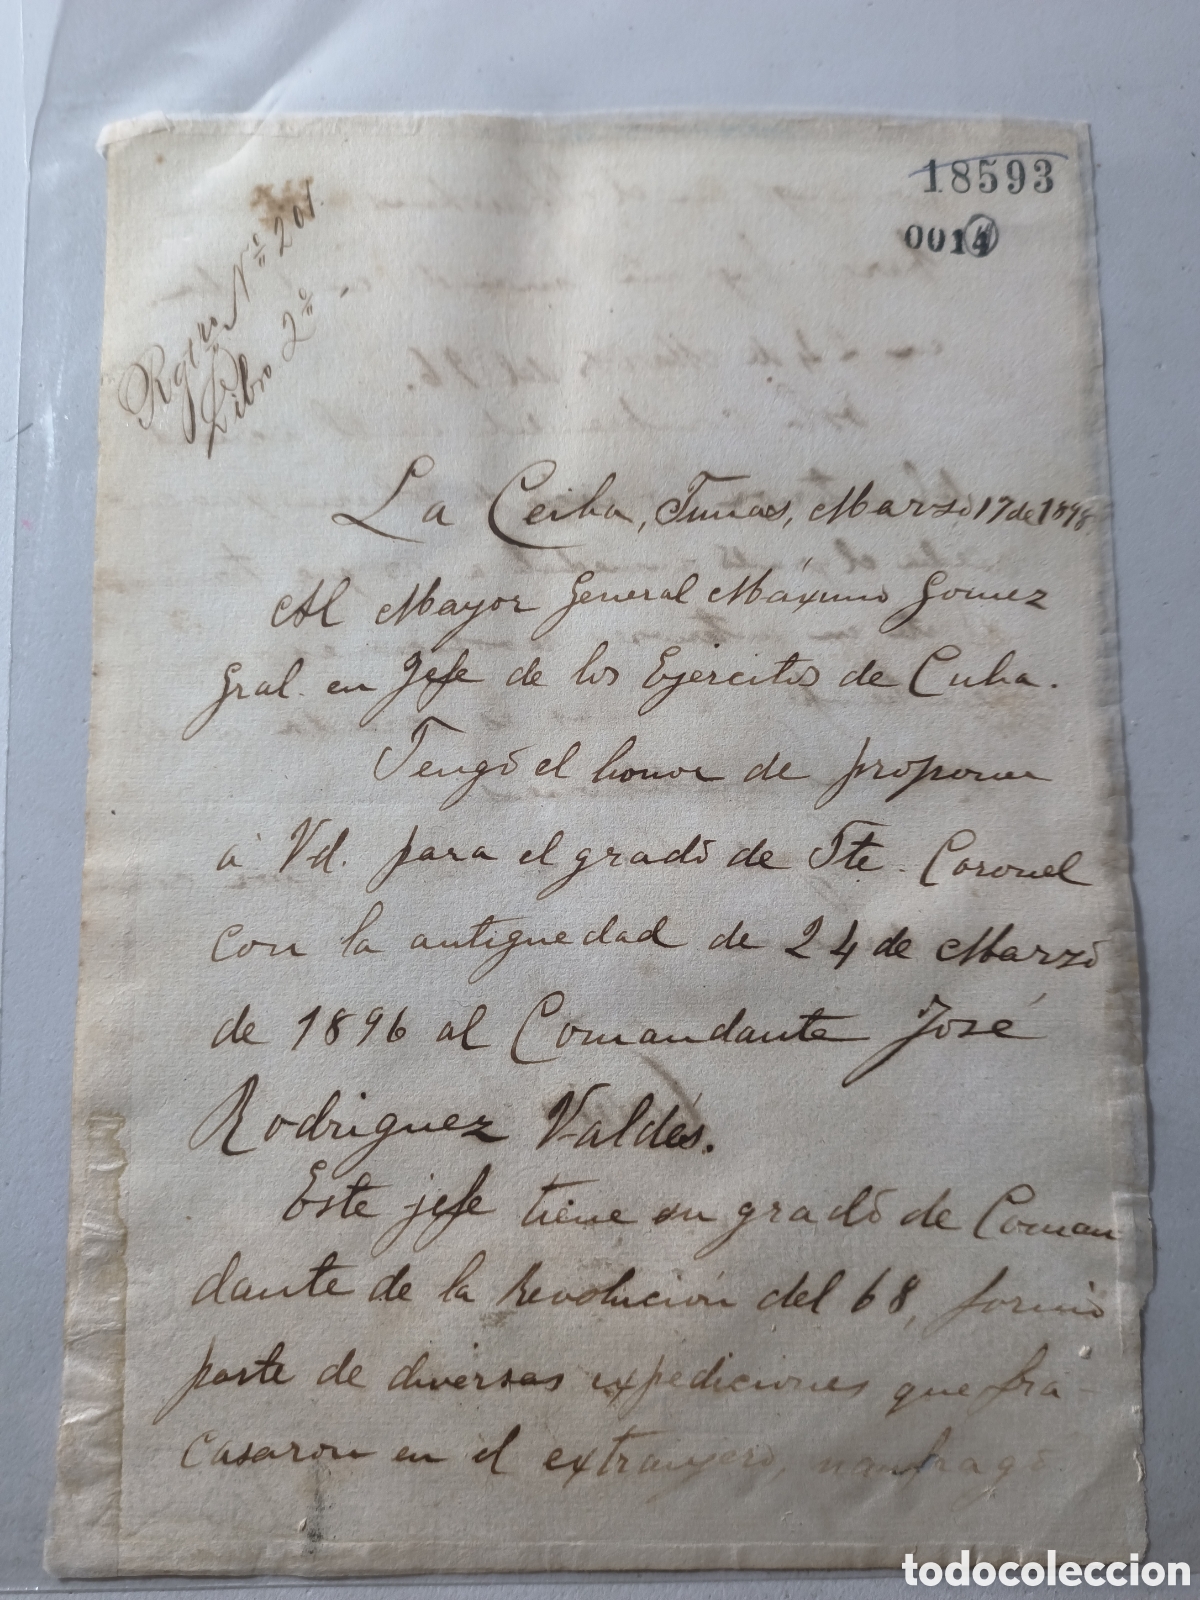 18593
0014
Rgtro Nº 201.
Libro 2º
La Ceiba, Tunas, Marzo 17 de 1898.
Al Mayor General Máximo Gomez
Gral. en Jefe de los Ejércitos de Cuba.
Tengo el honor de proponer
á Vd. para el grado de Tte. Coronel
con la antiguedad de 24 de Marzo
de 1896 al Comandante José
Rodriguez Valdés.
Este jefe tiene su grado de Coman
dante de la Revolución del 68, formó
parte de diversas expediciones que fra-
casaron en el extranjero, naufragó
todocoleccion